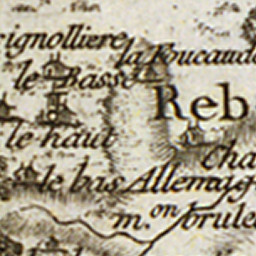 ignolliere
la Foucaud
le Basse
Reb
le haut
Cha
le bas Allemaig
m.on brule